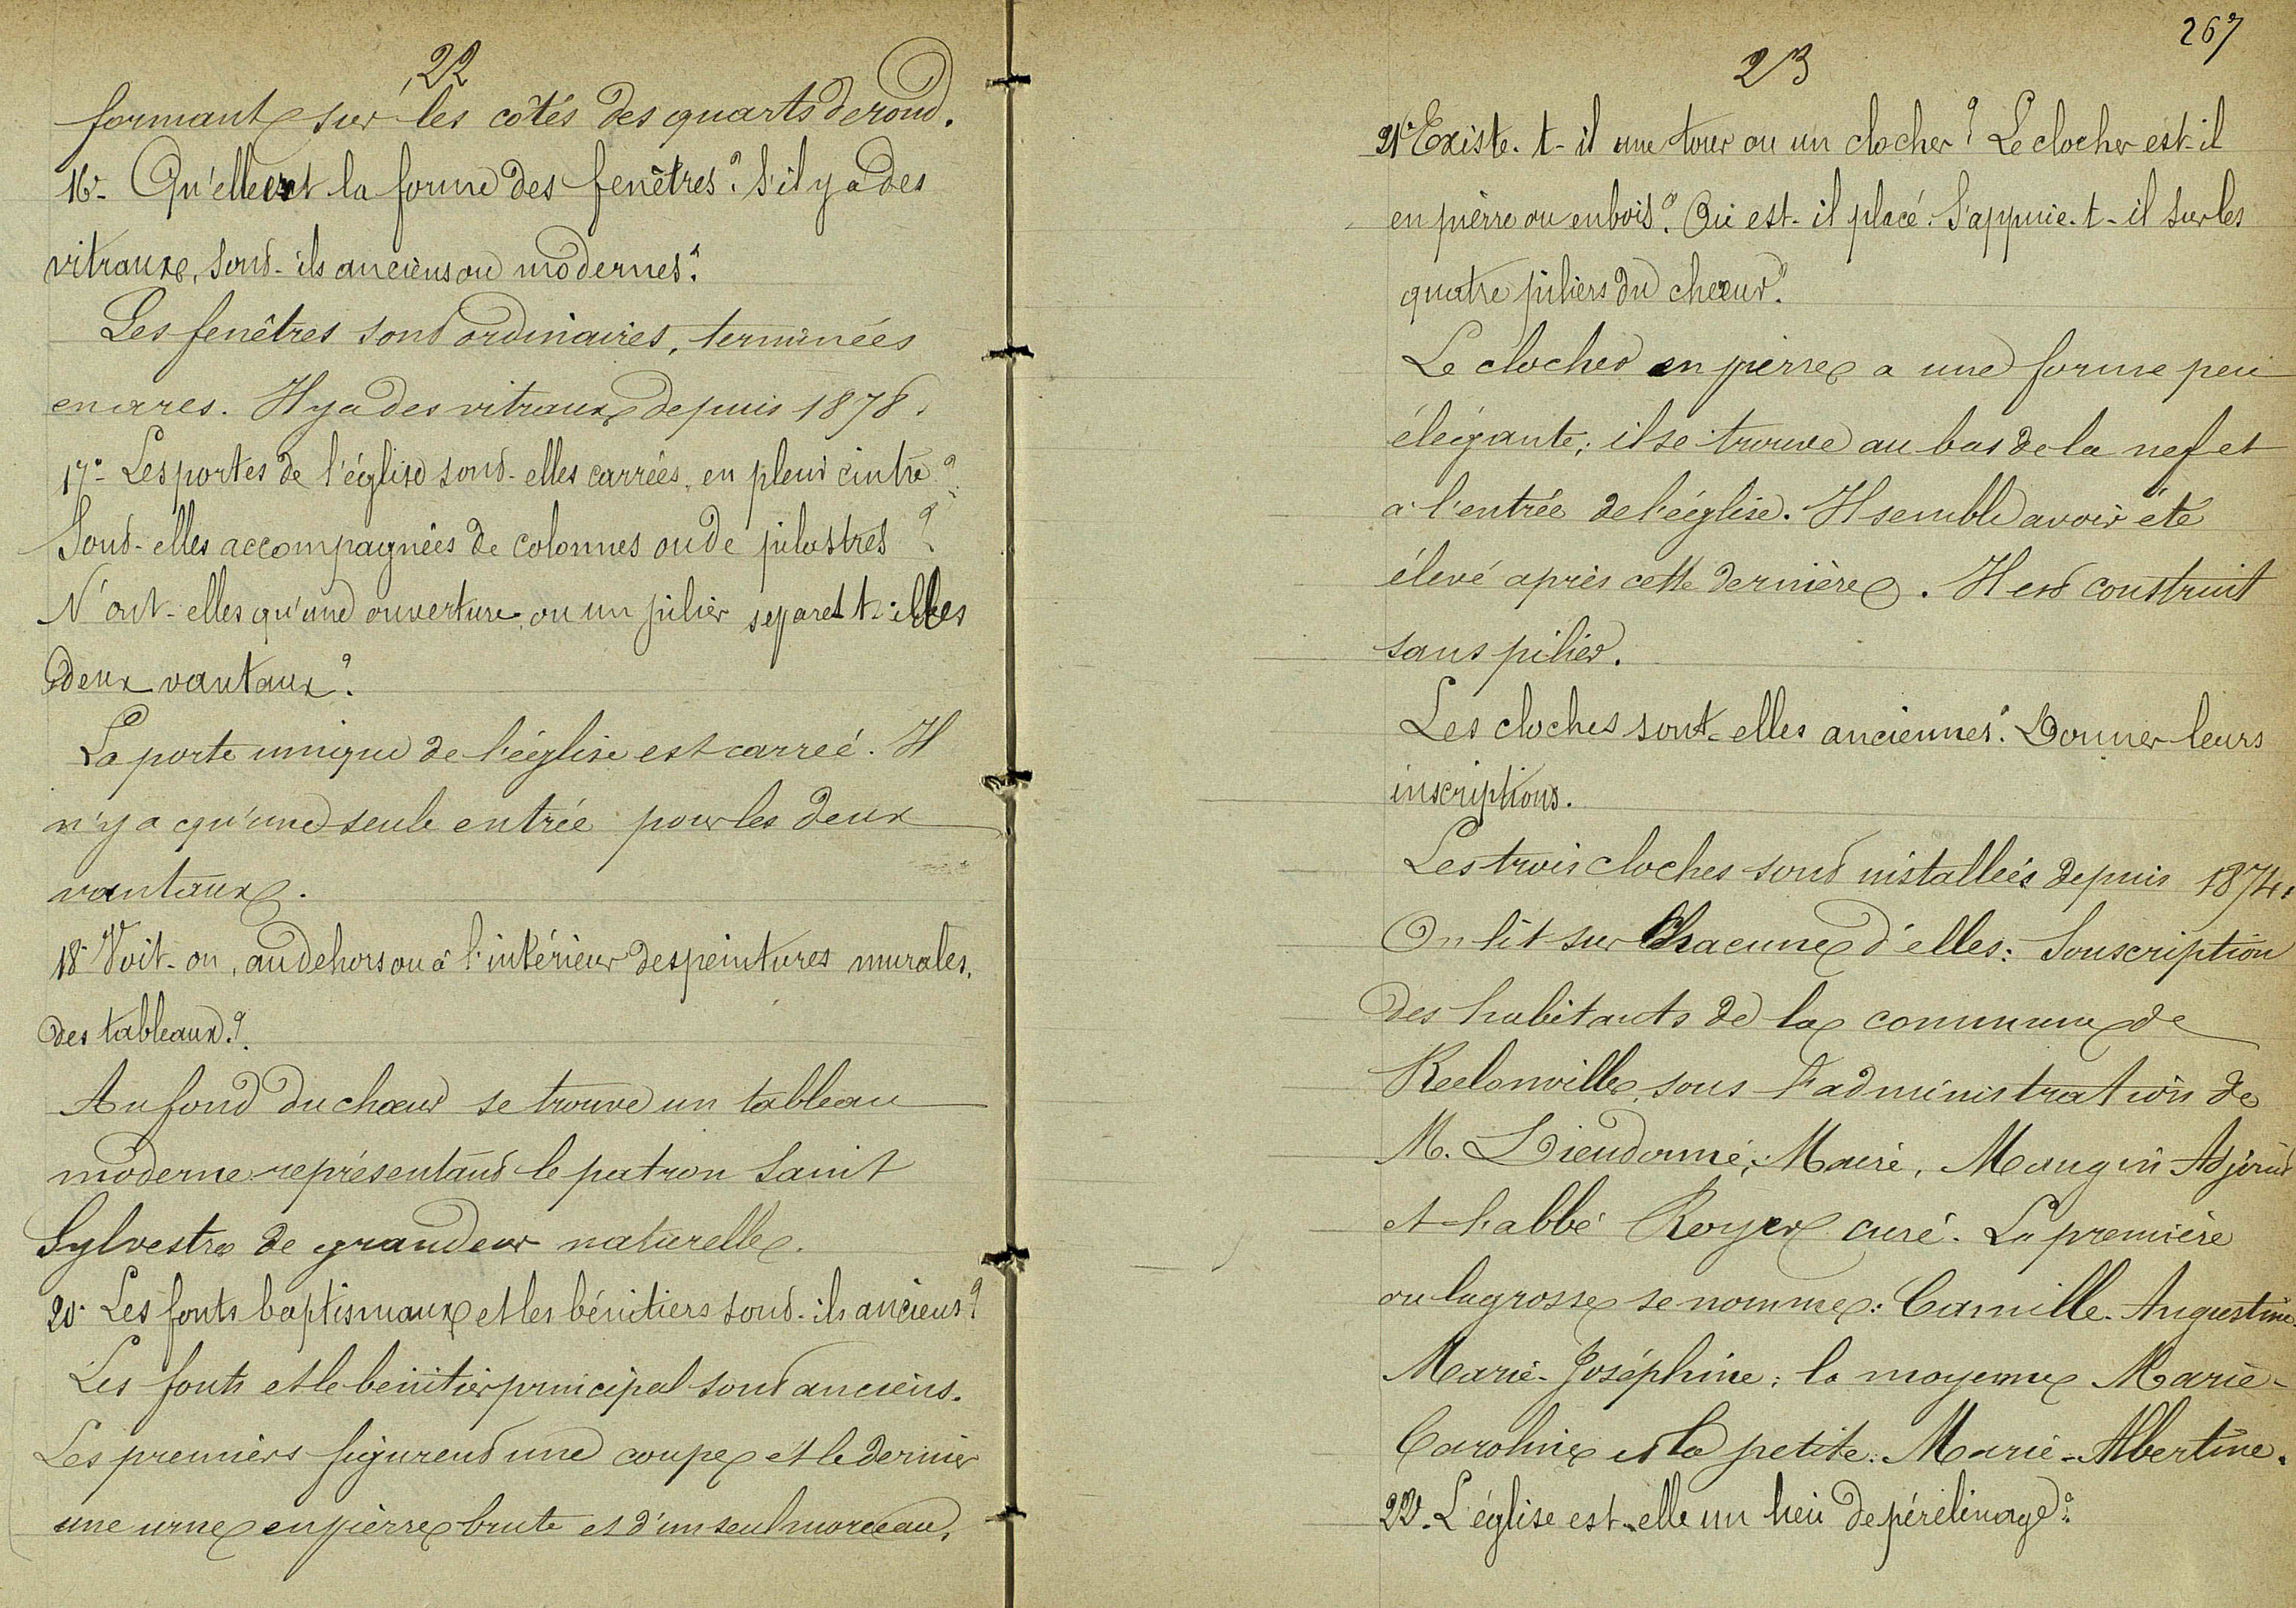 22
formant sur les côtés des quarts de rond.
16°- Qu'elle est la forme des fenêtres? S'il y a des
vitraux, sont-ils anciens ou modernes?
Les fenêtres sont ordinaires, terminées
en arcs. Il y a des vitraux depuis 1878.
17°- Les portes de l'église sont-elles carrées, en plein cintre?
Sont-elles accompagnées de colonnes ou de pilastres?
N'ont-elles qu'une ouverture, ou un pilier separe t-il les
deux vantaux?
La porte unique de l'église est carreé. Il
n'y a qu'une seule entrée pour les deux
vantaux.
18° Voit-on, au dehors ou à l'intérieur des peintures murales,
des tableaux?
Au fond du chœur se trouve un tableau
moderne représentant le patron Saint
Sylvestre de grandeur naturelle.
20° Les fonts baptismaux et les bénitiers sont-ils anciens?
Les fonts et le bénitier principal sont anciens.
Les premiers figurent une coupe et le dernier
une urne en pierre brute et d'un seul morceau.
267
23
21° Existe-t-il une tour ou un clocher? Le clocher est-il
en pierre ou en bois? Où est-il placé. S'appuie-t-il sur les
quatre piliers du chœur?
Le clocher en pierre a une forme peu
élégante; il se trouve au bas de la nef et
à l'entrée de l'église. Il semble avoir été
élevé après cette dernière. Il est construit
sans pilier.
Les cloches sont-elles anciennes? Donner leurs
inscriptions.
Les trois cloches sont installées depuis 1874.
On lit sur chacune d'elles: Souscription
des habitants de la commune de
Rislonville, sous l'administration de
M. Dieudonné, Maire, Mangin Adjoint
et l'abbé Royer curé. La première
ou la grosse se nomme: Camille-Augustine-
Marie-Joséphine; la moyenne Marie-
Caroline et la petite: Marie-Albertine.
22°. L'église est-elle un lieu de pérélinage?